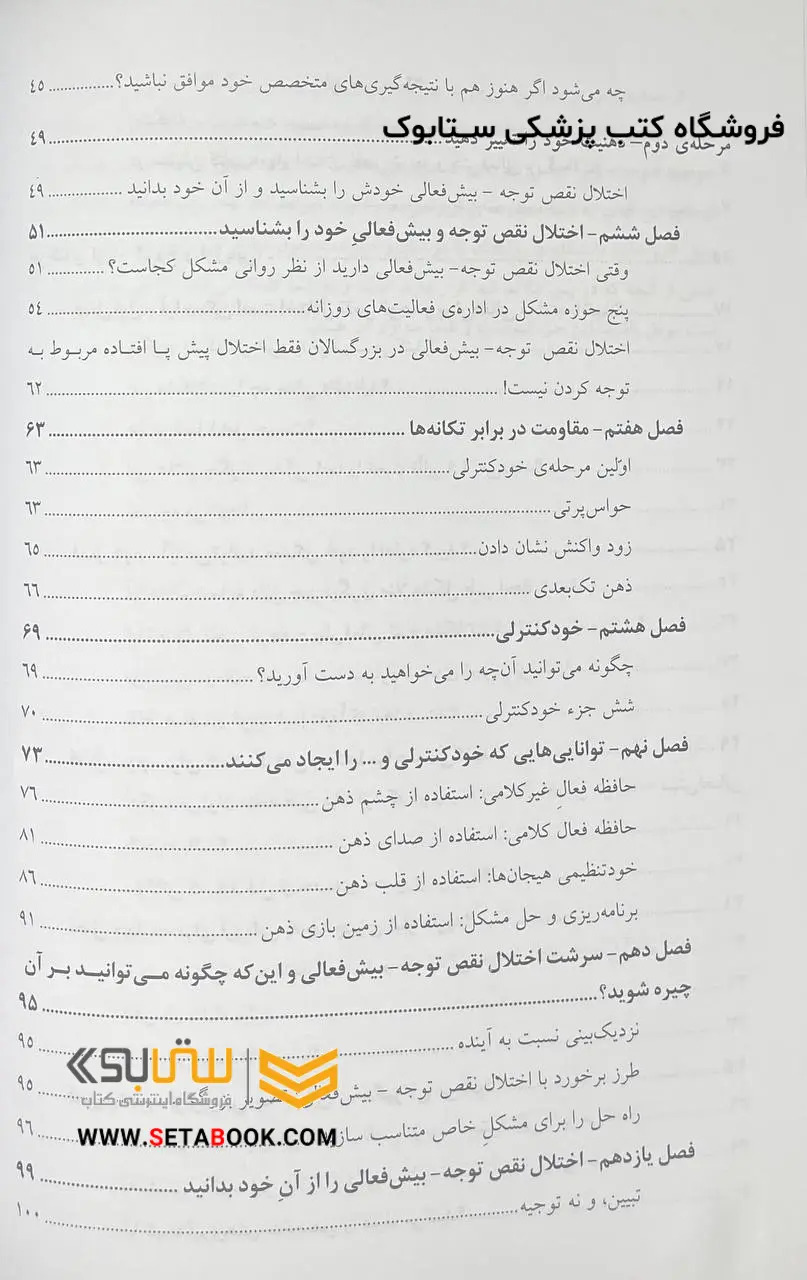 چه می‌شود اگر هنوز هم با نتیجه‌گیری‌های متخصص خود موافق نباشید؟ ............... ٤٥
فروشگاه کتب پزشکی ستابوک
مرحله‌ی دوم- خود را تغییر دهید ............... ٤٩
اختلال نقص توجه - بیش‌فعالی خودش را بشناسید و از آن خود بدانید ............... ٤٩
فصل ششم- اختلال نقص توجه و بیش‌فعالیِ خود را بشناسید ............... ٥١
وقتی اختلال نقص توجه- بیش‌فعالی دارید از نظر روانی مشکل کجاست؟ ............... ٥١
پنج حوزه مشکل در اداره‌ی فعالیت‌های روزانه ............... ٥٤
اختلال نقص توجه- بیش‌فعالی در بزرگسالان فقط اختلال پیش پا افتاده مربوط به
توجه کردن نیست! ............... ٦٢
فصل هفتم- مقاومت در برابر تکانه‌ها ............... ۶۳
اوّلین مرحله‌ی خودکنترلی ............... ٦٣
حواس‌پرتی ............... ٦٣
زود واکنش نشان دادن ............... ٦٥
ذهن تک‌بعدی ............... ٦٦
فصل هشتم- خودکنترلی ............... ۶۹
چگونه می‌توانید آن‌چه را می‌خواهید به دست آورید؟ ............... ٦٩
شش جزء خودکنترلی ............... ٧٠
فصل نهم- توانایی‌هایی که خودکنترلی و ... را ایجاد می‌کنند ............... ۷۳
حافظه فعالِ غیرکلامی: استفاده از چشم ذهن ............... ٧٦
حافظه فعال کلامی: استفاده از صدای ذهن ............... ٨١
خودتنظیمی هیجان‌ها: استفاده از قلب ذهن ............... ٨٦
برنامه‌ریزی و حل مشکل: استفاده از زمین بازی ذهن ............... ٩١
فصل دهم- سرشت اختلال نقص توجه- بیش‌فعالی و این‌که چگونه می‌توانید بر آن
چیره شوید؟ ............... ۹۵
نزدیک‌بینی نسبت به آینده ............... ٩٥
ستابوک
طرز برخورد با اختلال نقص توجه - بیش‌فعالی: تصویر ............... ٩٥
فروشگاه اینترنتی کتاب
راه حل را برای مشکلِ خاص متناسب ............... ٩٦
WWW.SETABOOK.COM
فصل یازدهم- اختلال نقص توجه- بیش‌فعالی را از آنِ خود بدانید ............... ۹۹
تبیین، و نه توجیه ............... ١٠٠